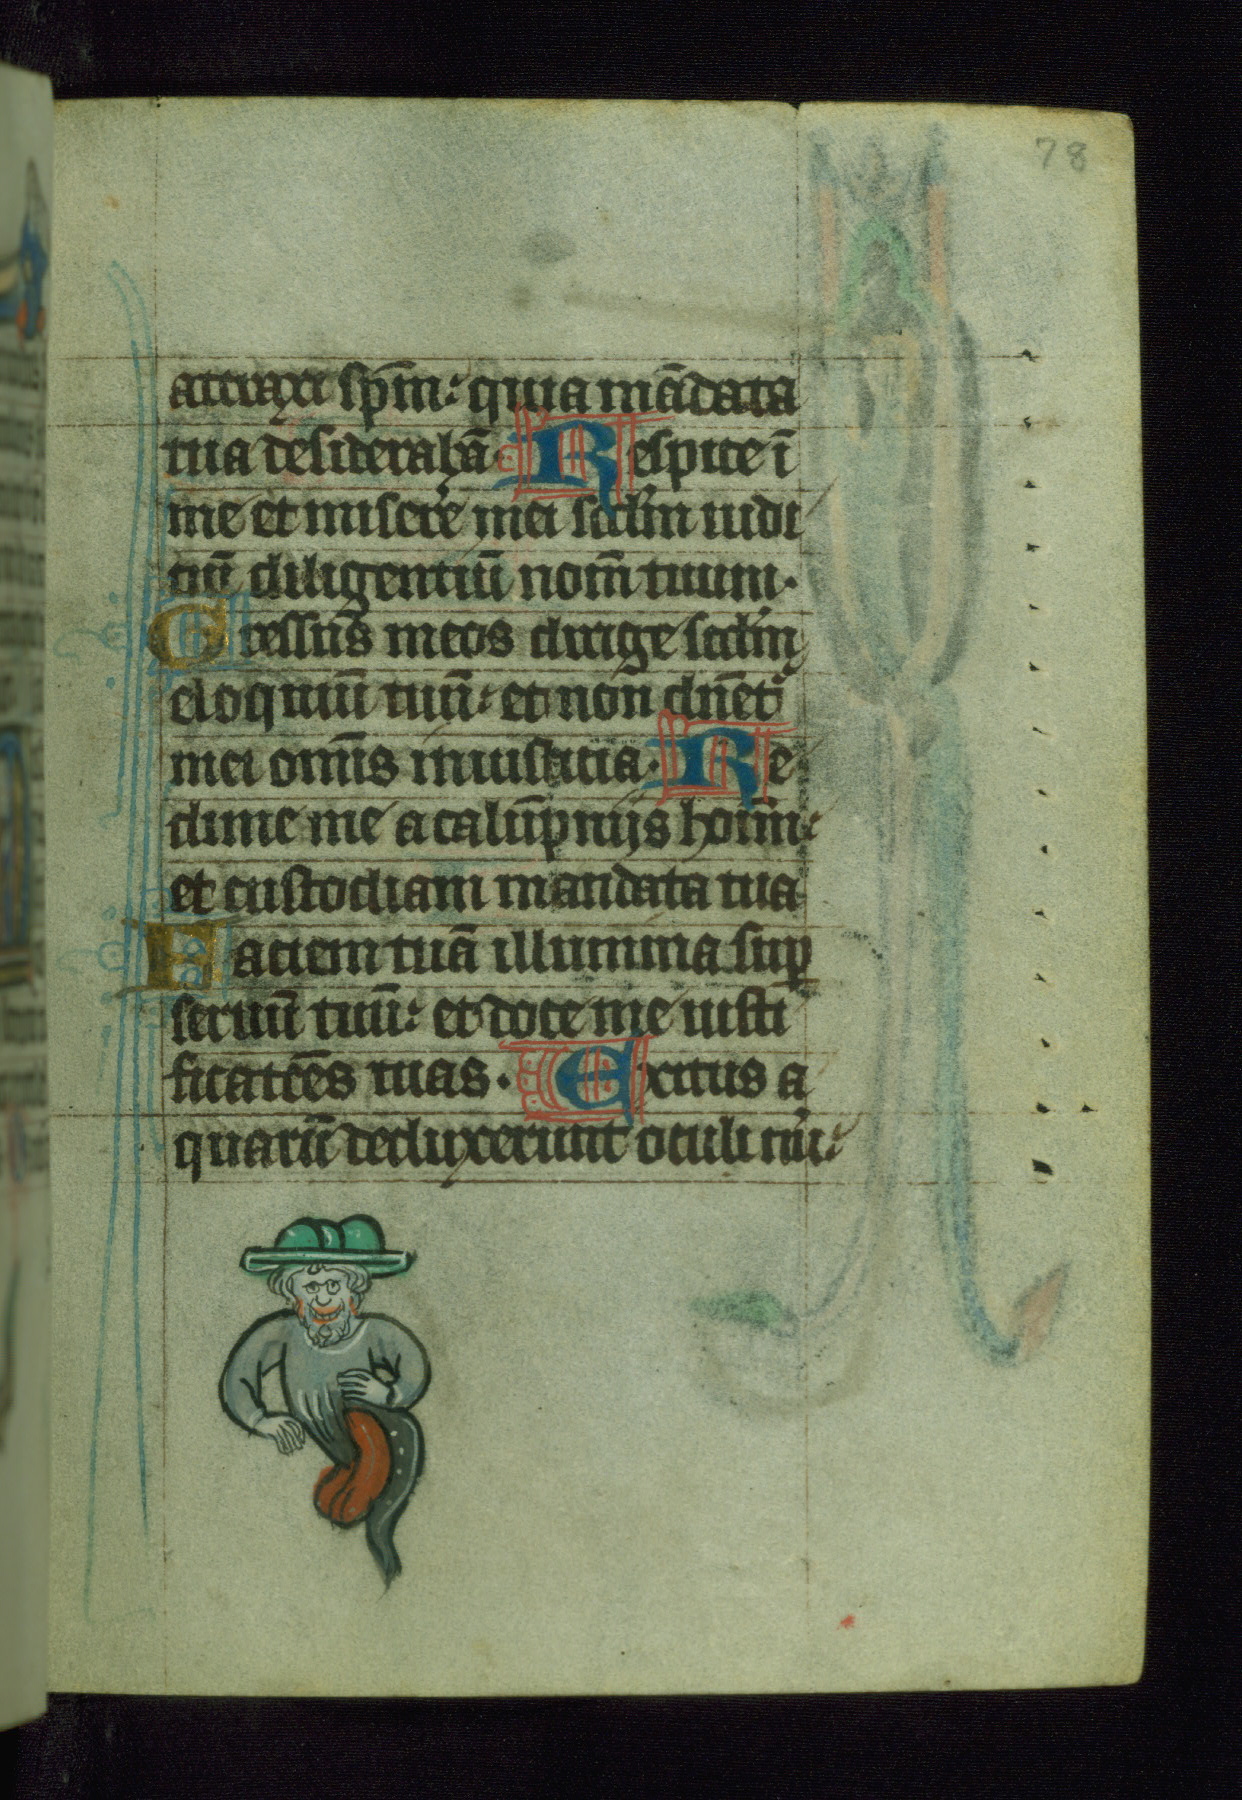 78
attraxi sp̄m: quia mādata
tua desiderabā. Respice ī
me et miserē mei scdm iudi
ciū diligentiū nom̄ tuum.
Gressus meos dirige scdm
eloquiū tuū: et non dn̄et
mei omīs iniusticia. Re
dime me a calūpnijs homī:
et custodiam mandata tua
Faciem tuā illumina sup
seruū tuū: et doce me iusti
ficatōēs tuas. Exitus a
quarū deduxerunt oculi mi: